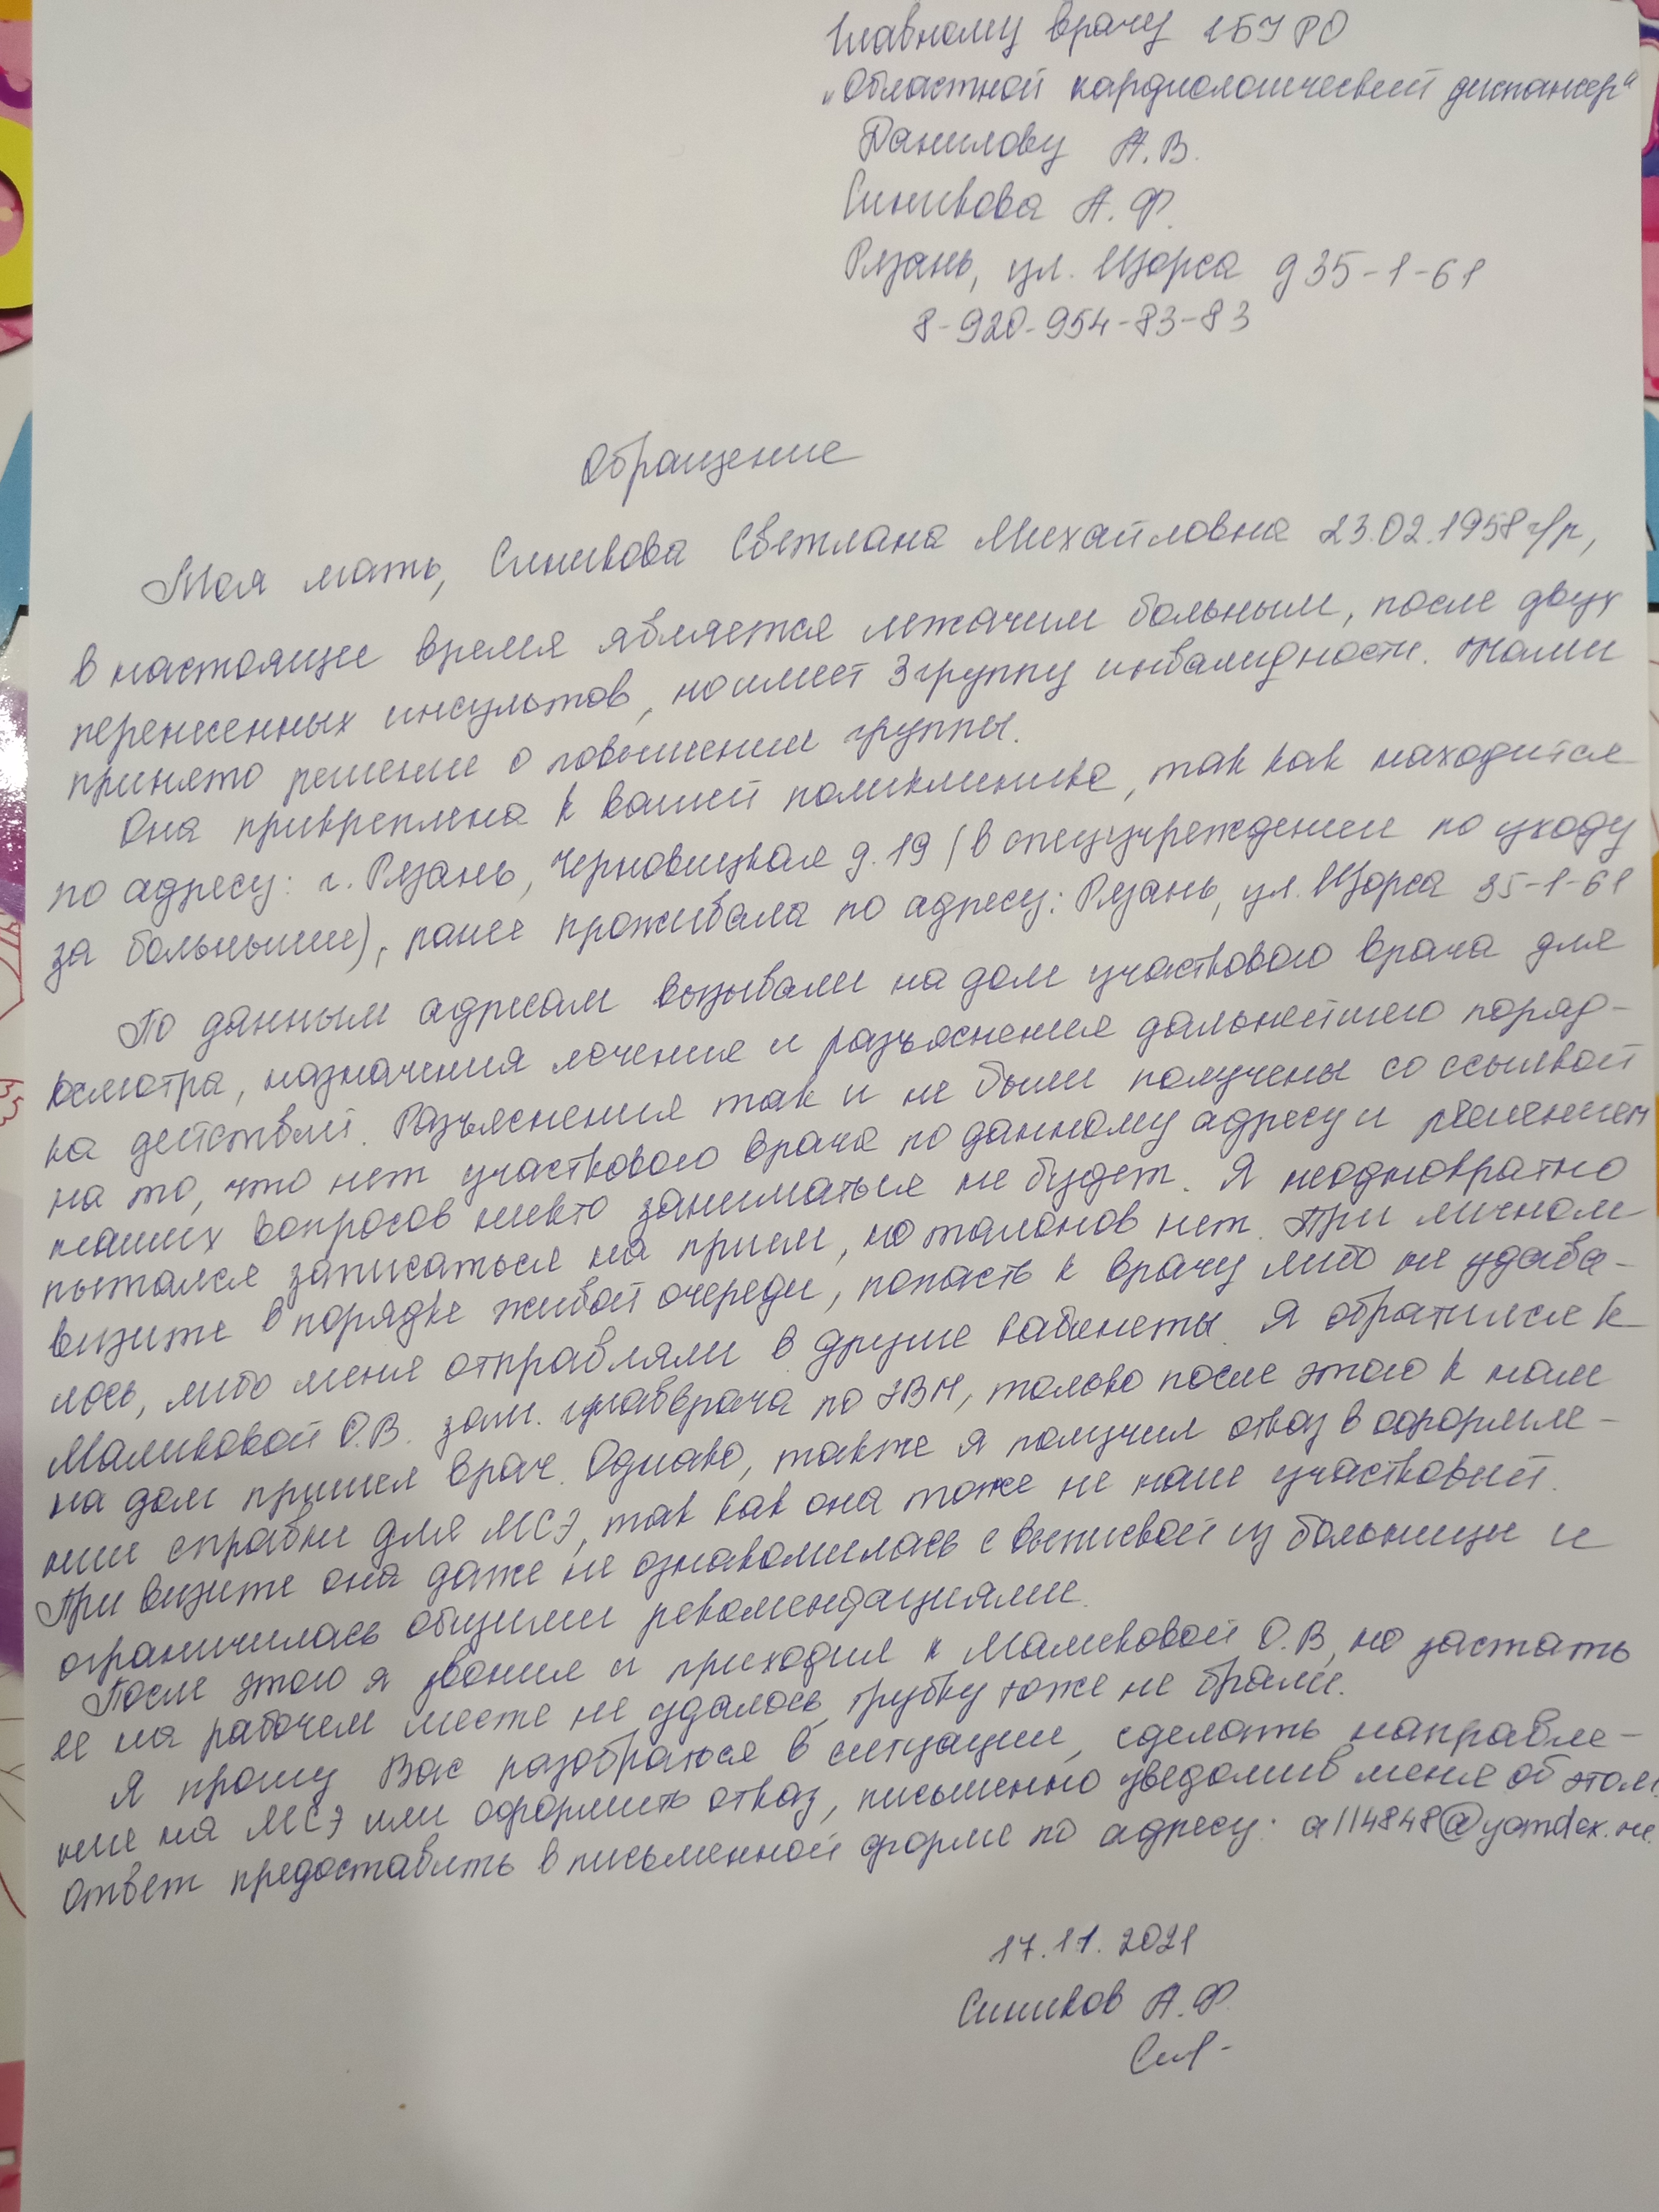 Главному врачу ГБУ РО
"Областной кардиологический диспансер"
Данилову А.В.
Синикова А.Ф.
Рязань, ул. Щорса д 35-1-61
8-920-954-83-83
Обращение
Моя мать, Синикова Светлана Михайловна 23.02.1958 г/р,
в настоящее время является лежачим больным, после двух
перенесенных инсультов, но имеет 3 группу инвалидности. Нами
принято решение о повышении группы.
Она прикреплена к вашей поликлинике, так как находится
по адресу: г. Рязань, Черновицкая д. 19 (в спецучреждении по уходу
за больными), ранее проживала по адресу: Рязань, ул. Щорса 35-1-61
По данным адресам вызывали на дом участкового врача для
осмотра, назначения лечения и разъяснения дальнейшего поряд-
ка действий. Разъяснения так и не были получены со ссылкой
на то, что нет участкового врача по данному адресу и решением
наших вопросов никто заниматься не будет. Я неоднократно
пытался записаться на прием, но талонов нет. При личном
визите в порядке живой очереди, попасть к врачу либо не удава-
лось, либо меня отправляли в другие кабинеты. Я обратился к
Маликовой О.В. зам. главврача по КВН, только после этого к нам
на дом пришел врач. Однако, также я получил отказ в оформле-
нии справки для МСЭ, так как она тоже не наш участковый.
При визите она даже не ознакомилась с выпиской из больницы и
ограничилась общими рекомендациями.
После этого я звонил и приходил к Маликовой О.В, но застать
ее на рабочем месте не удалось, трубку тоже не брали.
Я прошу Вас разобраться в ситуации, сделать направле-
ние на МСЭ или оформить отказ, письменно уведомив меня об этом.
Ответ предоставить в письменной форме по адресу: a114848@yandex.ru.
17.11.2021
Сиников А.Ф.